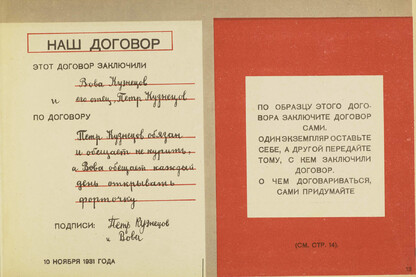 НАШ ДОГОВОР
ЭТОТ ДОГОВОР ЗАКЛЮЧИЛИ
Вова Кузнецов
и его отец, Петр Кузнецов
ПО ДОГОВОРУ
Петр Кузнецов обязан
и обещает не курить,
а Вова обещает каждый
день открывать
форточку
ПОДПИСИ: Петр Кузнецов
и Вова
10 НОЯБРЯ 1931 ГОДА
ПО ОБРАЗЦУ ЭТОГО ДОГО-
ВОРА ЗАКЛЮЧИТЕ ДОГОВОР
САМИ.
ОДИН ЭКЗЕМПЛЯР ОСТАВЬТЕ
СЕБЕ, А ДРУГОЙ ПЕРЕДАЙТЕ
ТОМУ, С КЕМ ЗАКЛЮЧИЛИ
ДОГОВОР.
О ЧЕМ ДОГОВАРИВАТЬСЯ,
САМИ ПРИДУМАЙТЕ
(СМ. СТР. 14).